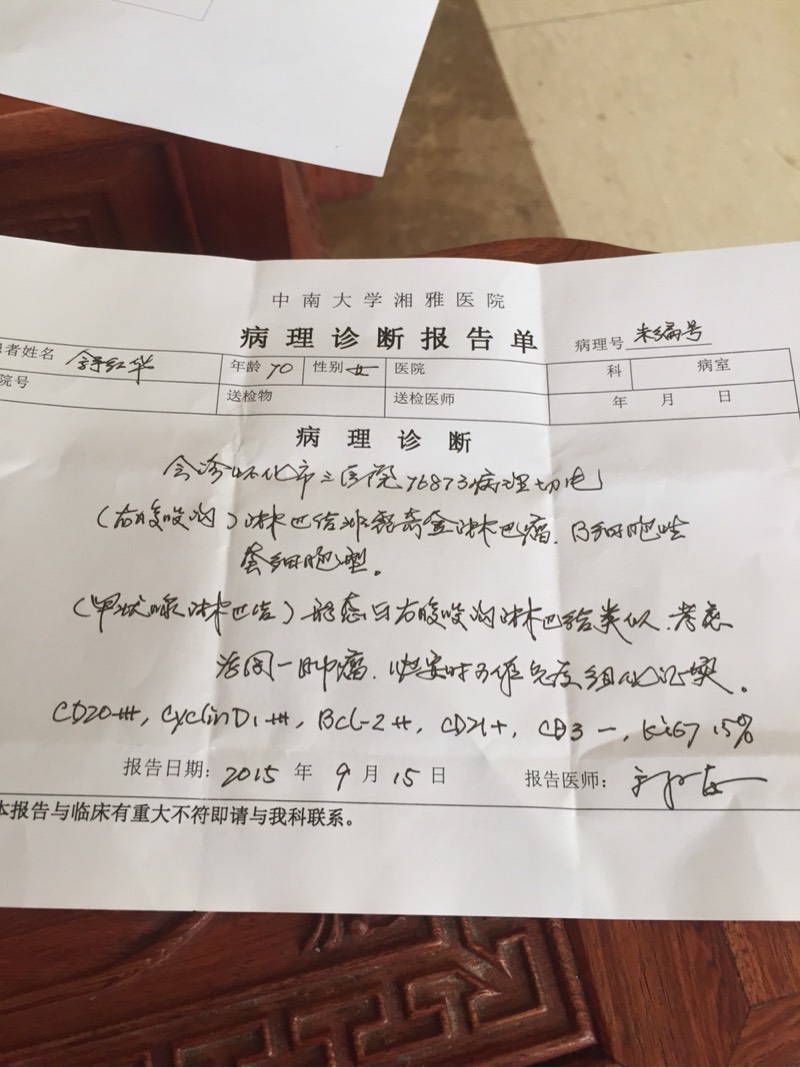 中南大学湘雅医院
病理诊断报告单
病理号 未编号
患者姓名 舒红华 年龄 70 性别 女 医院 科 病室
院号 送检物 送检医师 年 月 日
病理诊断
会诊怀化市三医院76873病理切片
(右腹股沟)淋巴结非霍奇金淋巴瘤.B细胞性
套细胞型。
(甲状腺淋巴结)形态与右腹股沟淋巴结类似.考虑
为同一肿瘤.必要时可作免疫组化证实。
CD20+++, CyclinD1+++, Bcl-2++, CD21+, CD3-, Ki67 15%
报告日期: 2015 年 9 月 15 日 报告医师:
本报告与临床有重大不符即请与我科联系。